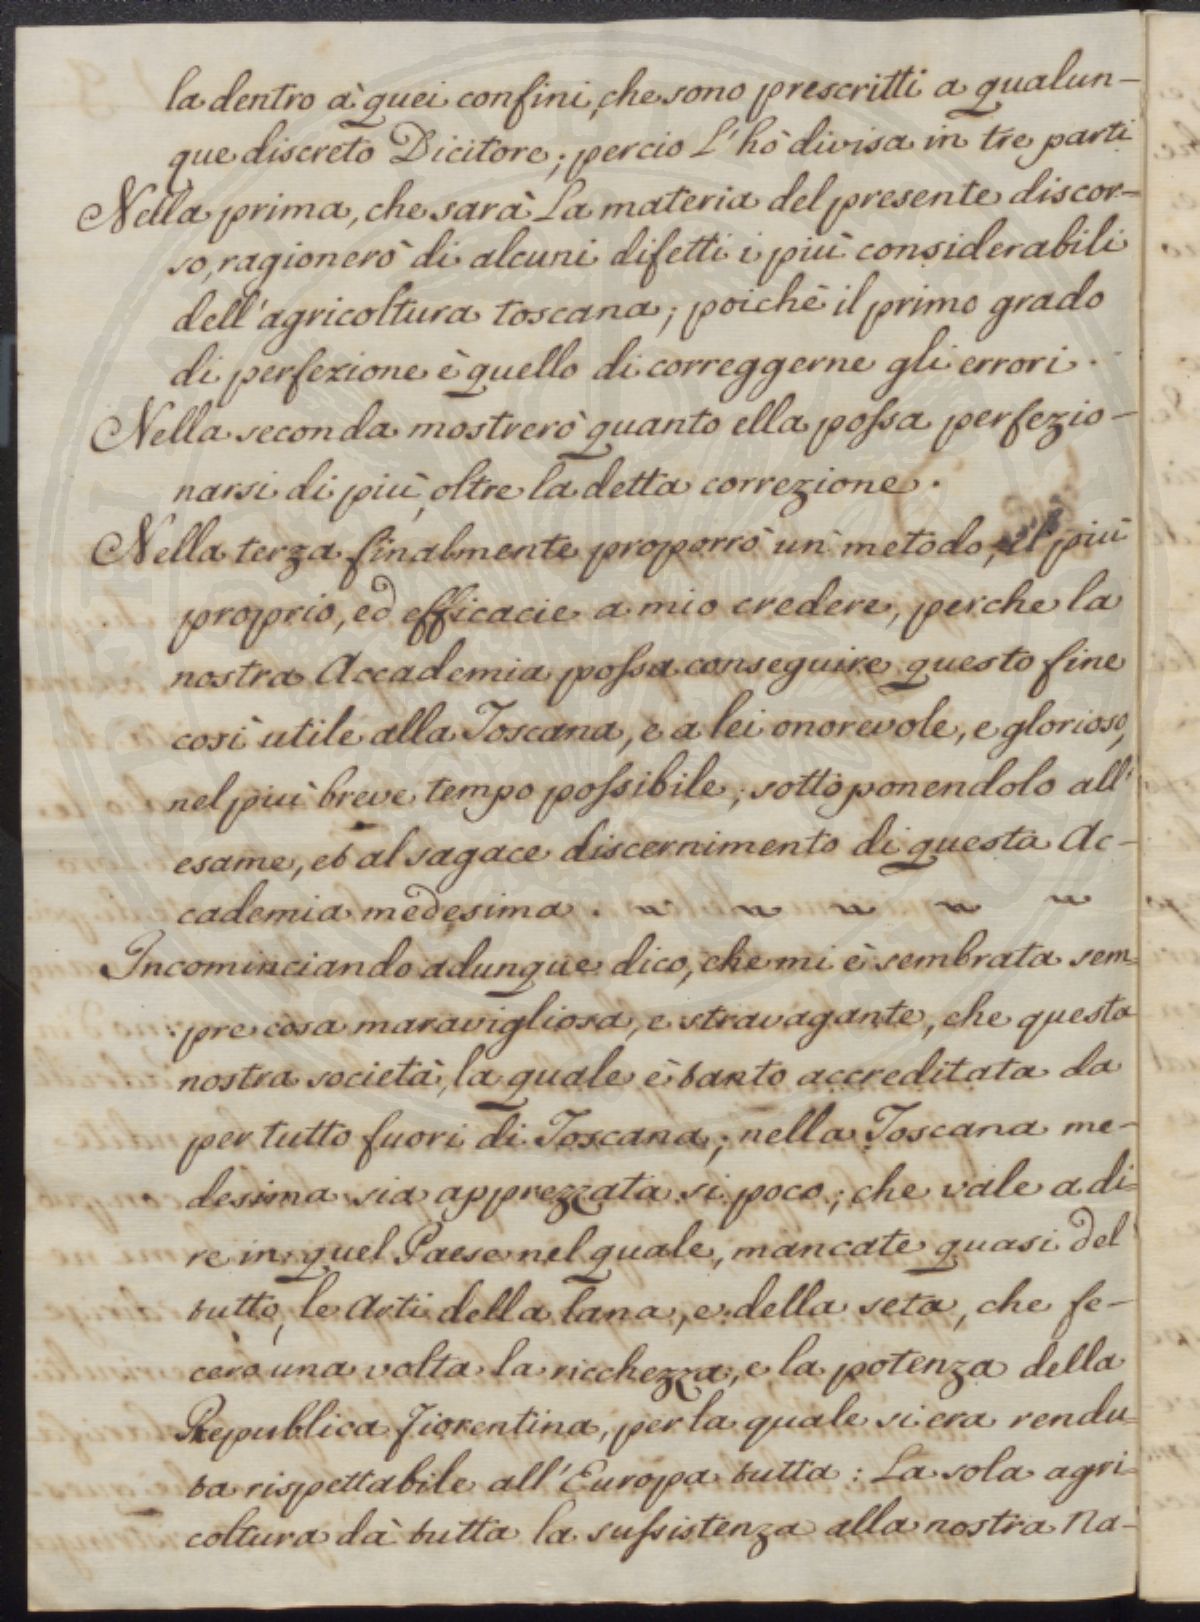 la dentro à quei confini, che sono prescritti a qualun-
que discreto Dicitore; percio l'hò divisa in tre parti
Nella prima, che sarà la materia del presente discor-
so, ragionerò di alcuni difetti i più considerabili
dell'agricoltura toscana; poichè il primo grado
di perfezione è quello di correggerne gli errori.
Nella seconda mostrerò quanto ella possa perfezio-
narsi di più, oltre la detta correzione.
Nella terza finalmente proporrò un metodo, il più
proprio, ed efficacie a mio credere, perche la
nostra Accademia possa conseguire questo fine
cosi utile alla Toscana, e a lei onorevole, e glorioso,
nel piu breve tempo possibile; sottoponendolo all'
esame, et al sagace discernimento di questa Ac-
cademia medesima.
Incominciando adunque dico, che mi è sembrata sem-
pre cosa maravigliosa, e stravagante, che questa
nostra società, la quale è tanto accreditata da
per tutto fuori di Toscana; nella Toscana me-
desima sia apprezzata si poco; che vale a di-
re in quel Paese nel quale, mancate quasi del
tutto, le Arti della lana, e della seta, che fe-
cero una volta la ricchezza, e la potenza della
Republica Fiorentina, per la quale si era rendu-
ta rispettabile all'Europa tutta: La sola agri-
coltura dà tutta la sussistenza alla nostra Na-